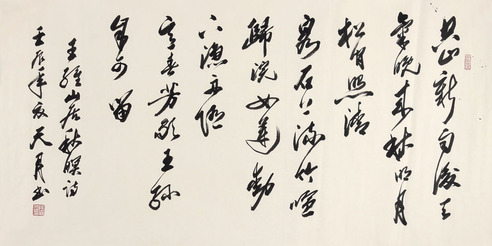 空山新雨後天
氣晚來秋明月
松間照清
泉石上流竹喧
歸浣女蓮動
下漁舟隨
意春芳歇王孫
自可留
王維山居秋暝詩
壬辰年夏天月書